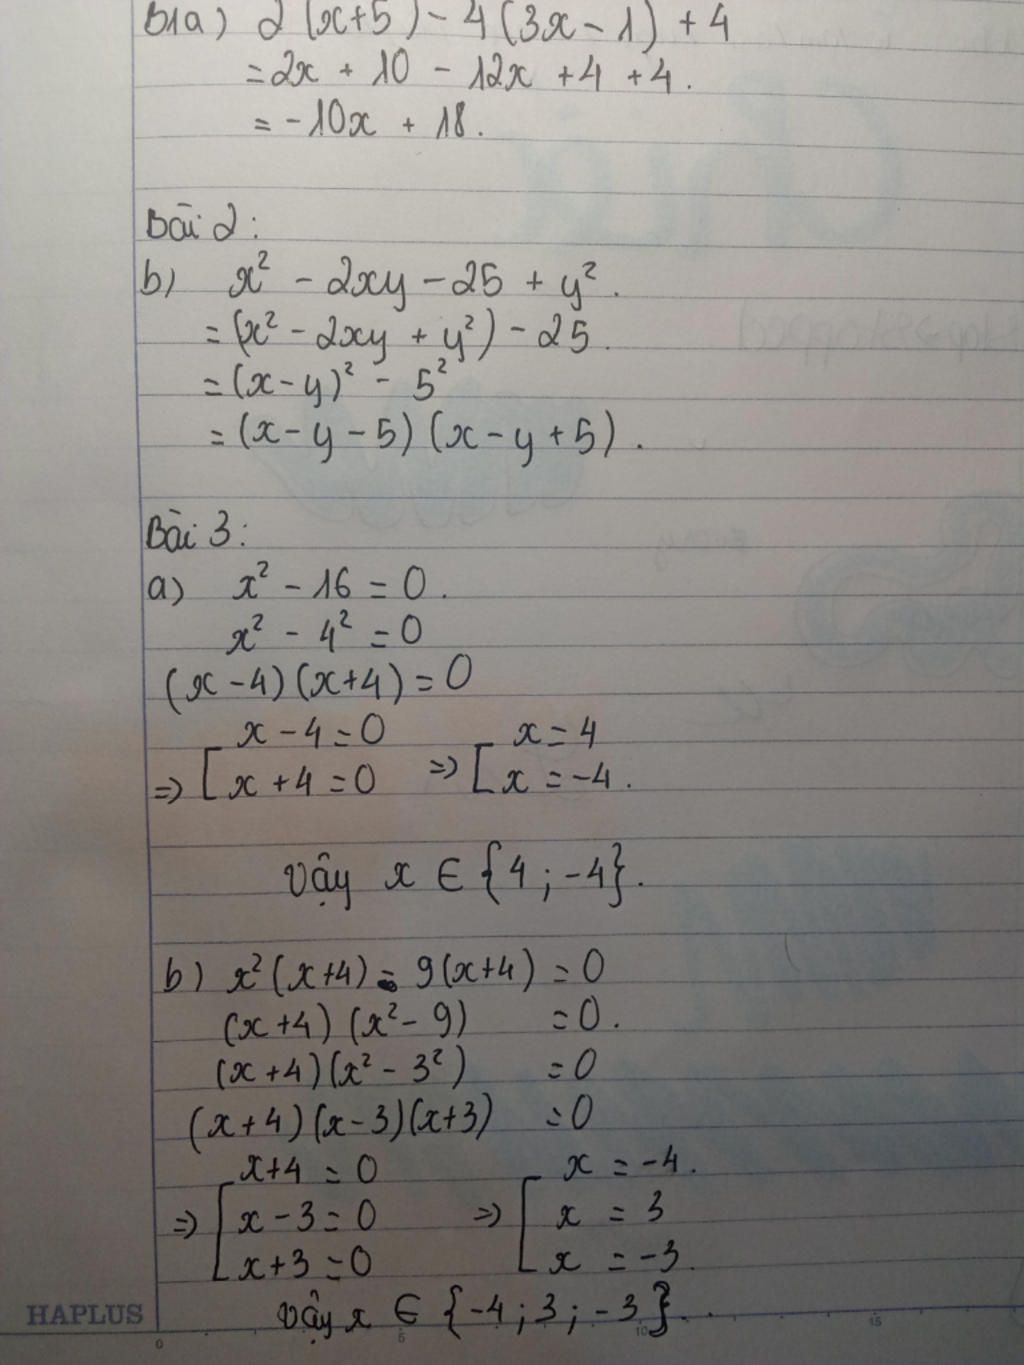 B1a) 2(x+5) - 4(3x - 1) + 4
= 2x + 10 - 12x + 4 + 4.
= -10x + 18.
Bài 2:
b) x² - 2xy - 25 + y².
= (x² - 2xy + y²) - 25.
= (x - y)² - 5²
= (x - y - 5) (x - y + 5).
Bài 3:
a) x² - 16 = 0.
x² - 4² = 0
(x - 4) (x + 4) = 0
x - 4 = 0 x = 4
=> [ x + 4 = 0 => [ x = -4.
Vậy x ∈ {4 ; -4}.
b) x² (x+4) - 9(x+4) = 0
(x+4) (x² - 9) = 0.
(x+4)(x² - 3²) = 0
(x+4)(x-3)(x+3) = 0
x+4 = 0 x = -4.
=> [ x - 3 = 0 => [ x = 3
x+3 = 0 x = -3.
Vậy x ∈ {-4 ; 3 ; -3}.
HAPLUS
0 5 10 15